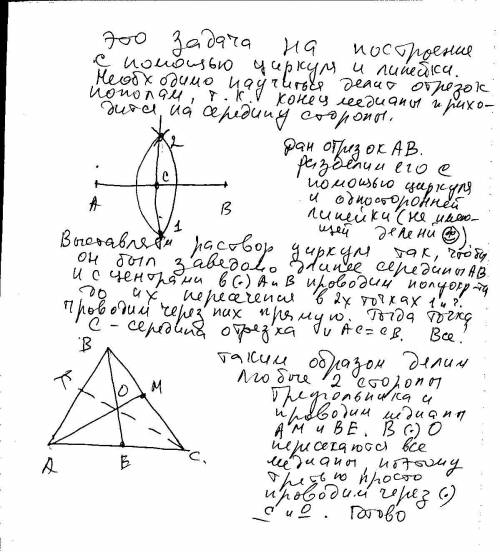 Это задача на построение
с помощью циркуля и линейки.
Необходимо научиться делит отрезок
пополам, т.к. конец медианы прихо-
дится на середину стороны.
2
Дан отрезок АВ.
разделим его с
помощью циркуля
и односторонней
линейки (не имею-
щей делений)
C
A
B
1
Выставляем раствор циркуля так, чтобы
он был заведомо длинее середины АВ
и с центрами в (·) А и В проводим полуокр-ти
до их пересечения в 2х точках 1 и 2.
Проводим через них прямую. Тогда точка
С - середина отрезка и АС = СВ. Все!
B
Таким образом делим
любые 2 стороны
треугольника и
проводим медианы
АМ и ВЕ. В (·) О
пересекаются все
медианы, поэтому
третью просто
проводим через (·)
С и О. Готово
O
M
A
E
C.